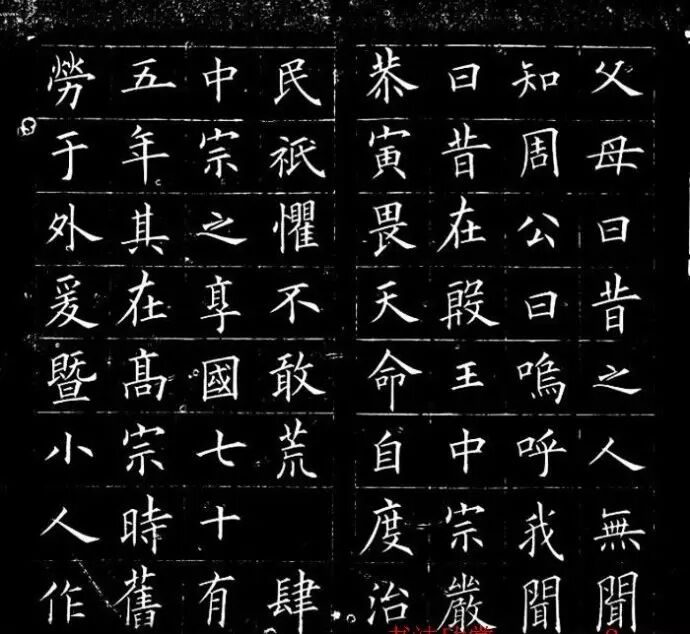 父母曰昔之人無聞
知周公曰嗚呼我聞
曰昔在殷王中宗嚴
恭寅畏天命自度治
民祗懼不敢荒肆
中宗之享國七十有
五年其在高宗時舊
勞于外爰暨小人作